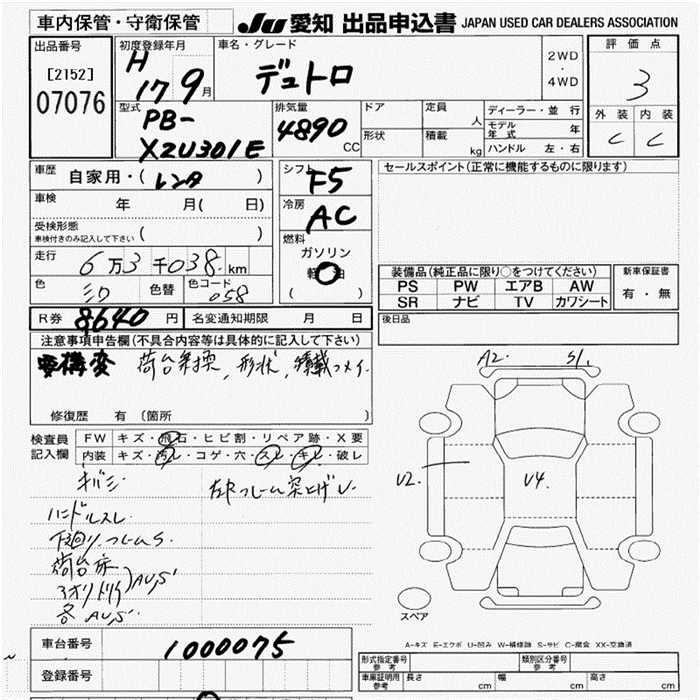 車内保管・守衛保管
JU 愛知 出品申込書 JAPAN USED CAR DEALERS ASSOCIATION
出品番号
[2152]
07076
初度登録年月
H 17 9月
車名・グレード
デュトロ
2WD
・
4WD
評価点
3
外装 内装
C C
型式
PB-
XZU301E
排気量
4890 CC
ドア
形状
定員 人
積載 kg
ディーラー・並行
モデル年式 年
ハンドル 左・右
車歴
自家用・( レンタ )
車検
年 月( 日)
受検形態
車検付きのみ記入して下さい ( )
走行
6万3千038 km
色
色替
色コード
058
シフト
F5
冷房
AC
燃料
ガソリン
軽油
( )
セールスポイント(正常に機能するものに限ります)
装備品(純正品に限り○をつけてください)
PS PW エアB AW
SR ナビ TV カワシート
新車保証書
有・無
後日品
R券 8640 円
名変通知期限 月 日
注意事項申告欄(不具合箇所等は具体的に記入して下さい)
要構変 荷台乗換, 形状, 積載つメイ
修復歴 有 (箇所
検査員
記入欄
FW キズ・飛石・ヒビ割・リペア跡・X要
内装 キズ・汚レ・コゲ・穴・スレ・キレ・破レ
キバミ
ハンドルスレ
下回り、フレームS
荷台床
アオリ
AUS
各AUS
A2. S1.
U2. U4.
スペア
A-キズ E-エクボ U-凹み W-補修跡 S-サビ C-腐食 XX-交換済
車台番号
1000075
登録番号
形式指定番号
参考
類別区分番号
参考
車庫証明用
参考
長さ cm
幅 cm
高さ cm